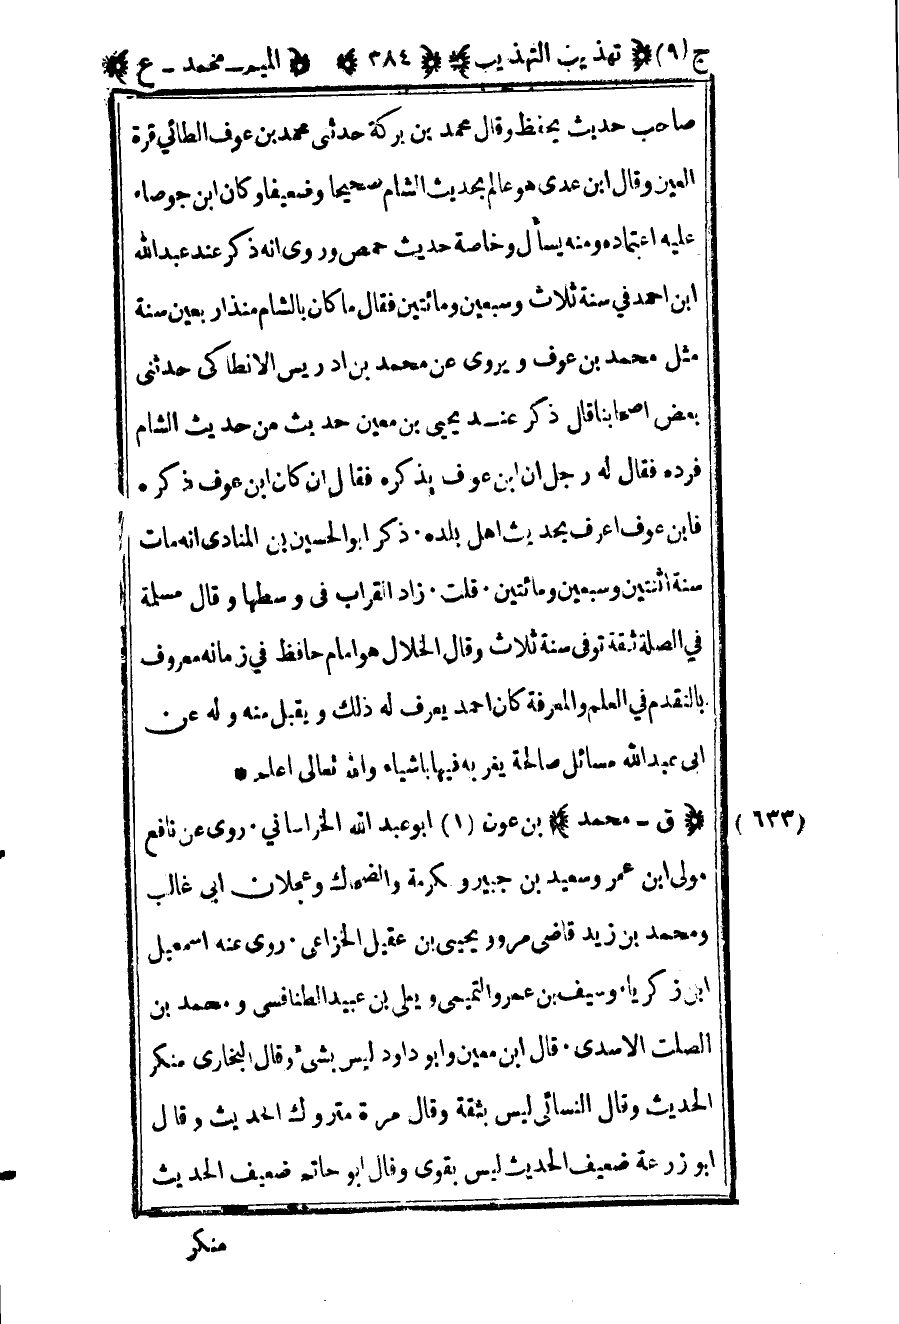 ج (٩) ﴿ تهذيب التهذيب ﴾ ﴿ ٣٨٤ ﴾ ﴿ الميم ـ محمد ـ ع ﴾
صاحب حديث يحفظ وقال محمد بن بركة حدثنى محمد بن عوف الطائي قرة
العين وقال ابن عدى هو عالم بحديث الشام صحيحا وضعيفا وكان ابن جوصاء
عليه اعتماده ومنه يسأل وخاصة حديث حمص وروى انه ذكر عند عبدالله
ابن احمد في سنة ثلاث وسبعين ومائتين فقال ما كان بالشام منذ اربعين سنة
مثل محمد بن عوف ويروى عن محمد بن ادريس الانطاكى حدثنى
بعض اصحابنا قال ذكر عند يحيى بن معين حديث من حديث الشام
فرده فقال له رجل ان ابن عوف يذكره فقال ان كان ابن عوف ذكره
فابن عوف اعرف بحديث اهل بلده · ذكر ابو الحسين بن المنادى انه مات
سنة اثنتين وسبعين ومائتين · قلت · زاد القراب فى وسطها وقال مسلمة
في الصلة ثقة توفى سنة ثلاث وقال الخلال هو امام حافظ في زمانه معروف
بالتقدم في العلم والمعرفة كان احمد يعرف له ذلك ويقبل منه وله عن
ابى عبدالله مسائل صالحة يغرب فيها باشياء والله تعالى اعلم *
(٦٣٣) ﴿ ق ـ محمد ﴾ بن عون (١) ابو عبد الله الخراساني · روى عن نافع
مولى ابن عمر وسعيد بن جبير وعكرمة والضحاك وعجلان ابى غالب
ومحمد بن زيد قاضى مرو ويحيى بن عقيل الخزاعى · روى عنه اسمعيل
ابن زكرياء وسيف بن عمرو التميمى ويعلى بن عبيد الطنافسى ومحمد بن
الصلت الاسدى · قال ابن معين وابو داود ليس بشئ وقال البخارى منكر
الحديث وقال النسائى ليس بثقة وقال مرة متروك الحديث وقال
ابو زرعة ضعيف الحديث ليس بقوى وقال ابو حاتم ضعيف الحديث
منكر